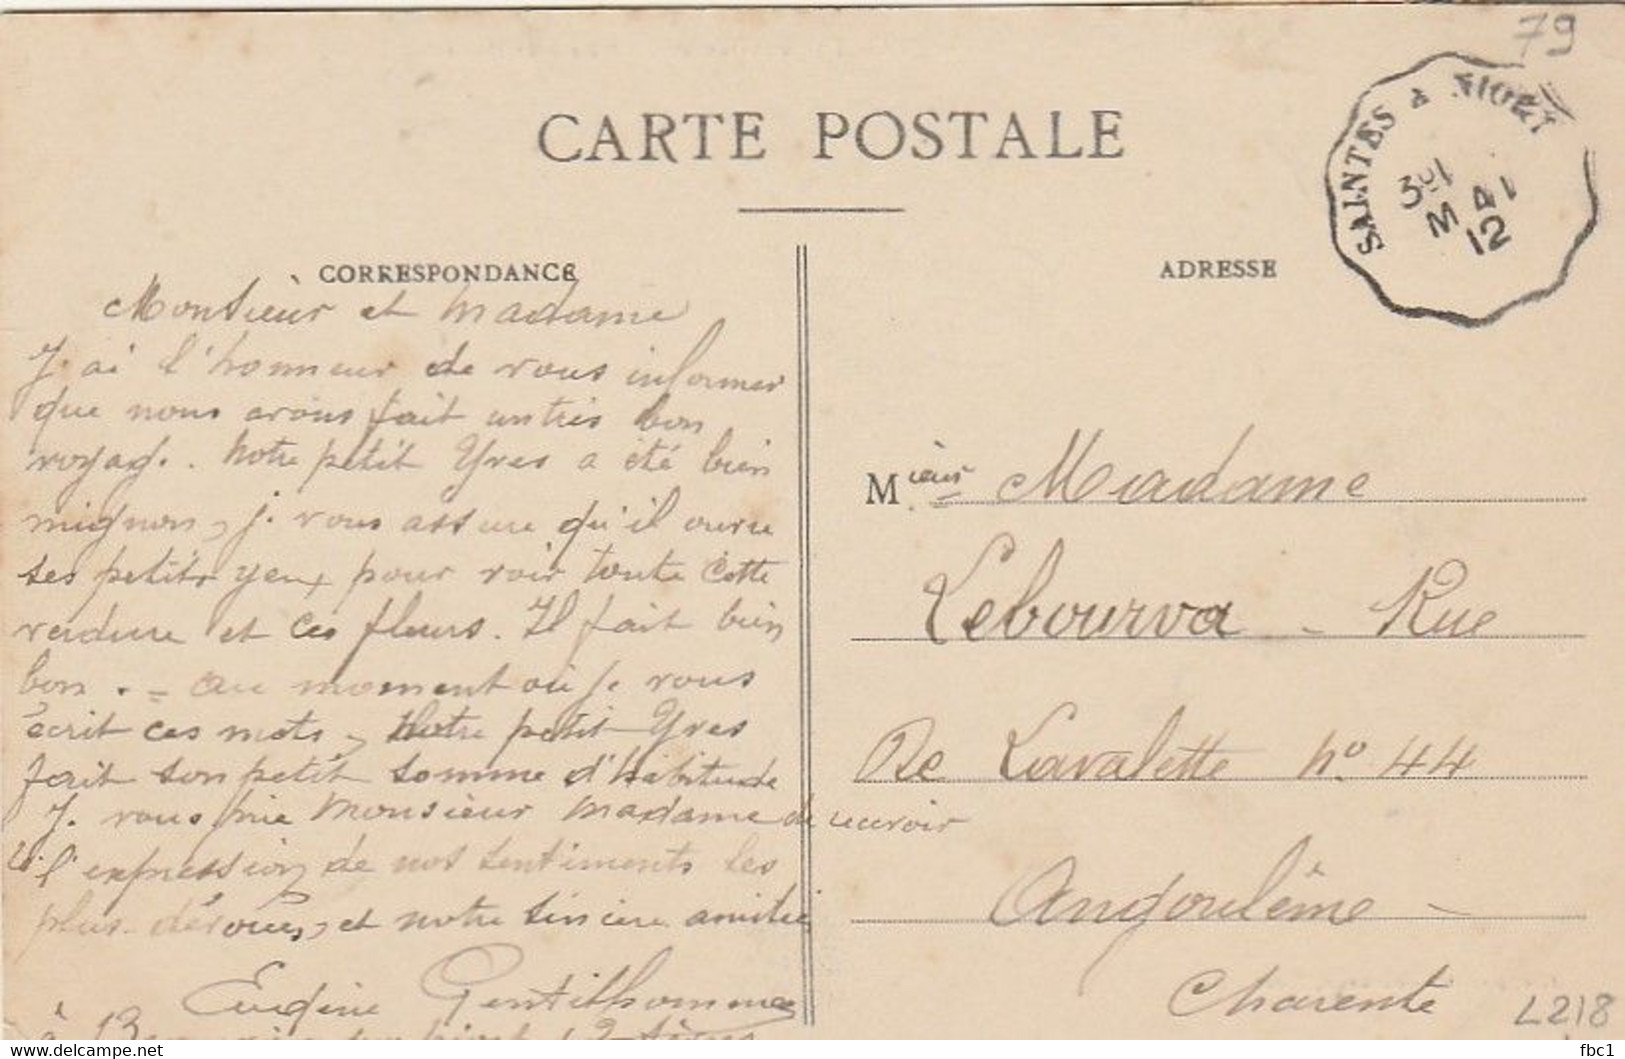 79
CARTE POSTALE
SAINTES À NIORT
MAI
12
CORRESPONDANCE
ADRESSE
Monsieur et Madame
J'ai l'honneur de vous informer
que nous avons fait un très bon
voyage. Notre petit Yves a été bien
mignon, je vous assure qu'il ouvre
ses petits yeux pour voir toute cette
verdure et ces fleurs. Il fait bien
bon. - au moment où je vous
écrit ces mots, Notre petit Yves
fait son petit somme d'habitude
Je vous prie Monsieur Madame de recevoir
l'expression de nos sentiments les
plus dévoués, et notre sincère amitié
Eugène Gentilhomme
à
M ieur Madame
Lebourva - Rue
De Lavalette No 44
Angoulême -
Charente
L218
fbc1